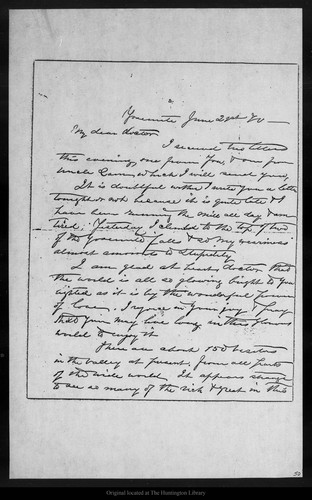 Yosemite June 29th 70 —
My dear doctor
I received two letters
this evening, one from you & one from
Uncle Sam, which I will send you,
It is doubtful whether I write you a letter
tonight or not because it is quite late & I
have been running the mill all day & am
tired. Yesterday I climbed to the top of two
of the Yosemite falls & so my weariness
almost amounts to stupidity
I am glad at heart, doctor that
the world is all so glowing bright to you
lighted as it is by the wonderful power
of love. I rejoice in your joy & pray
that you may live long in this glorious
world to enjoy it
There are about 150 visitors
in the valley at present, from all parts
of the wide world. It appears strange
to see so many of the rich & great in this
52
Original located at The Huntington Library